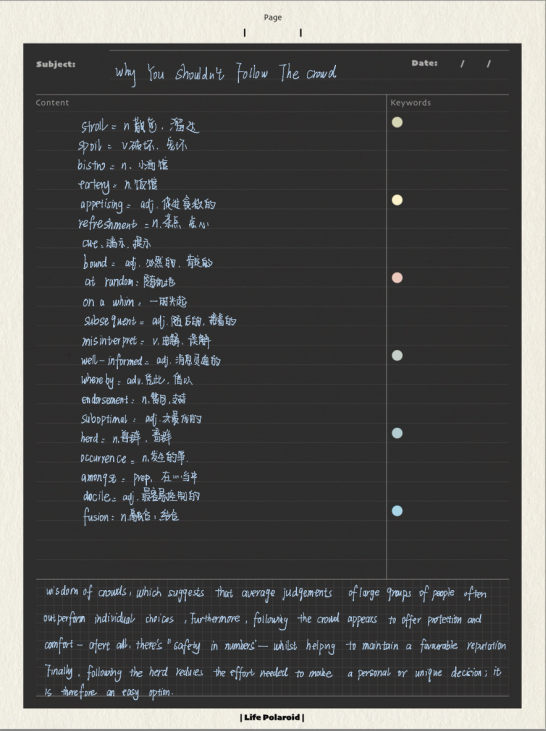 Page
Subject: Why You Shouldn't Follow The crowd
Date: / /
Content Keywords
stroll = n 散步, 溜达
spoil = v 破坏, 宠坏
bistro = n. 小酒馆
eatery = n. 饭馆
appetising = adj. 促进食欲的
refreshment = n. 茶点 点心
cue, 暗示, 提示
bound = adj. 必然的, 有义务的
at random: 随机地
on a whim, 一时兴起
subsequent = adj. 随后的,
misinterpret = v. 曲解, 误解
well-informed = adj. 消息灵通的
whereby = adv. 凭此, 借以
endorsement = n. 赞同, 支持
suboptimal = adj. 次最佳的
herd = n. 兽群, 畜群
occurrence = n. 发生的事
amongst = prep. 在…当中
docile = adj. 的
fusion = n. 融合, 结合
wisdom of crowds, which suggests that average judgements of large groups of people often
outperform individual choices, Furthermore, following the crowd appears to offer protection and
comfort - after all, there's "safety in numbers" - whilst helping to maintain a favourable reputation
Finally, following the herd reduces the effort needed to make a personal or unique decision; it
is therefore an easy option.
| Life Polaroid |